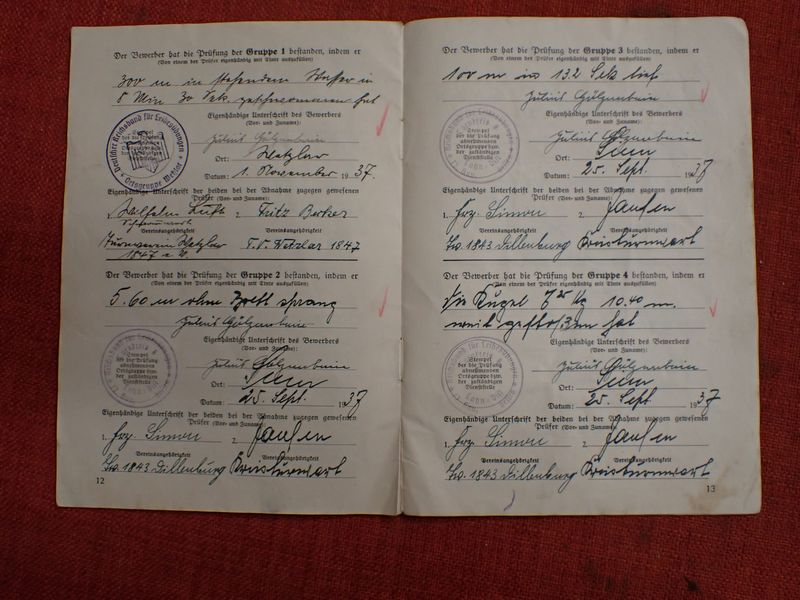 Der Bewerber hat die Prüfung der Gruppe 1 bestanden, indem er
(Von einem der Prüfer eigenhändig mit Tinte auszufüllen)
300 m in stehendem Wasser in
8 Min 30 Sek. geschwommen hat
Eigenhändige Unterschrift des Bewerbers
(Vor- und Zuname):
Julius
Ort: Wetzlar
Datum: 1. November 1937.
Deutscher Reichsbund für Leibesübungen
Ortsgruppe Wetzlar
Eigenhändige Unterschrift der beiden bei der Abnahme zugegen gewesenen
Prüfer (Vor- und Zuname):
1. Wilhelm Luth 2. Fritz Becker
Vereinsangehörigkeit Vereinsangehörigkeit
Turnverein Wetzlar T.V. Wetzlar 1847
1847 e.V.
Der Bewerber hat die Prüfung der Gruppe 2 bestanden, indem er
(Von einem der Prüfer eigenhändig mit Tinte auszufüllen)
5.60 m ohne Brett sprang
Julius
Eigenhändige Unterschrift des Bewerbers
(Vor- und Zuname):
Julius
Ort: Sinn
Datum: 25. Sept. 1937
Stempel
der die Prüfung
abnehmenden
Ortsgruppe bzw.
der zuständigen
Dienststelle
Eigenhändige Unterschrift der beiden bei der Abnahme zugegen gewesenen
Prüfer (Vor- und Zuname):
1. Frz. Simon 2. Jansen
Vereinsangehörigkeit Vereinsangehörigkeit
Tv. 1843 Dillenburg Kreisturnwart
12
Der Bewerber hat die Prüfung der Gruppe 3 bestanden, indem er
(Von einem der Prüfer eigenhändig mit Tinte auszufüllen)
100 m in 13,2 Sek lief
Julius
Eigenhändige Unterschrift des Bewerbers
(Vor- und Zuname):
Julius
Ort: Sinn
Datum: 25. Sept. 1937
Stempel
der die Prüfung
abnehmenden
Ortsgruppe bzw.
der zuständigen
Dienststelle
Eigenhändige Unterschrift der beiden bei der Abnahme zugegen gewesenen
Prüfer (Vor- und Zuname):
1. Frz. Simon 2. Jansen
Vereinsangehörigkeit Vereinsangehörigkeit
Tv. 1843 Dillenburg Kreisturnwart
Der Bewerber hat die Prüfung der Gruppe 4 bestanden, indem er
(Von einem der Prüfer eigenhändig mit Tinte auszufüllen)
die Kugel 7 25 kg 10.40 m.
weit gestoßen hat
Eigenhändige Unterschrift des Bewerbers
(Vor- und Zuname):
Julius
Ort: Sinn
Datum: 25. Sept 1937
Stempel
der die Prüfung
abnehmenden
Ortsgruppe bzw.
der zuständigen
Dienststelle
Eigenhändige Unterschrift der beiden bei der Abnahme zugegen gewesenen
Prüfer (Vor- und Zuname):
1. Frz. Simon 2. Jansen
Vereinsangehörigkeit Vereinsangehörigkeit
Tv. 1843 Dillenburg Kreisturnwart
13